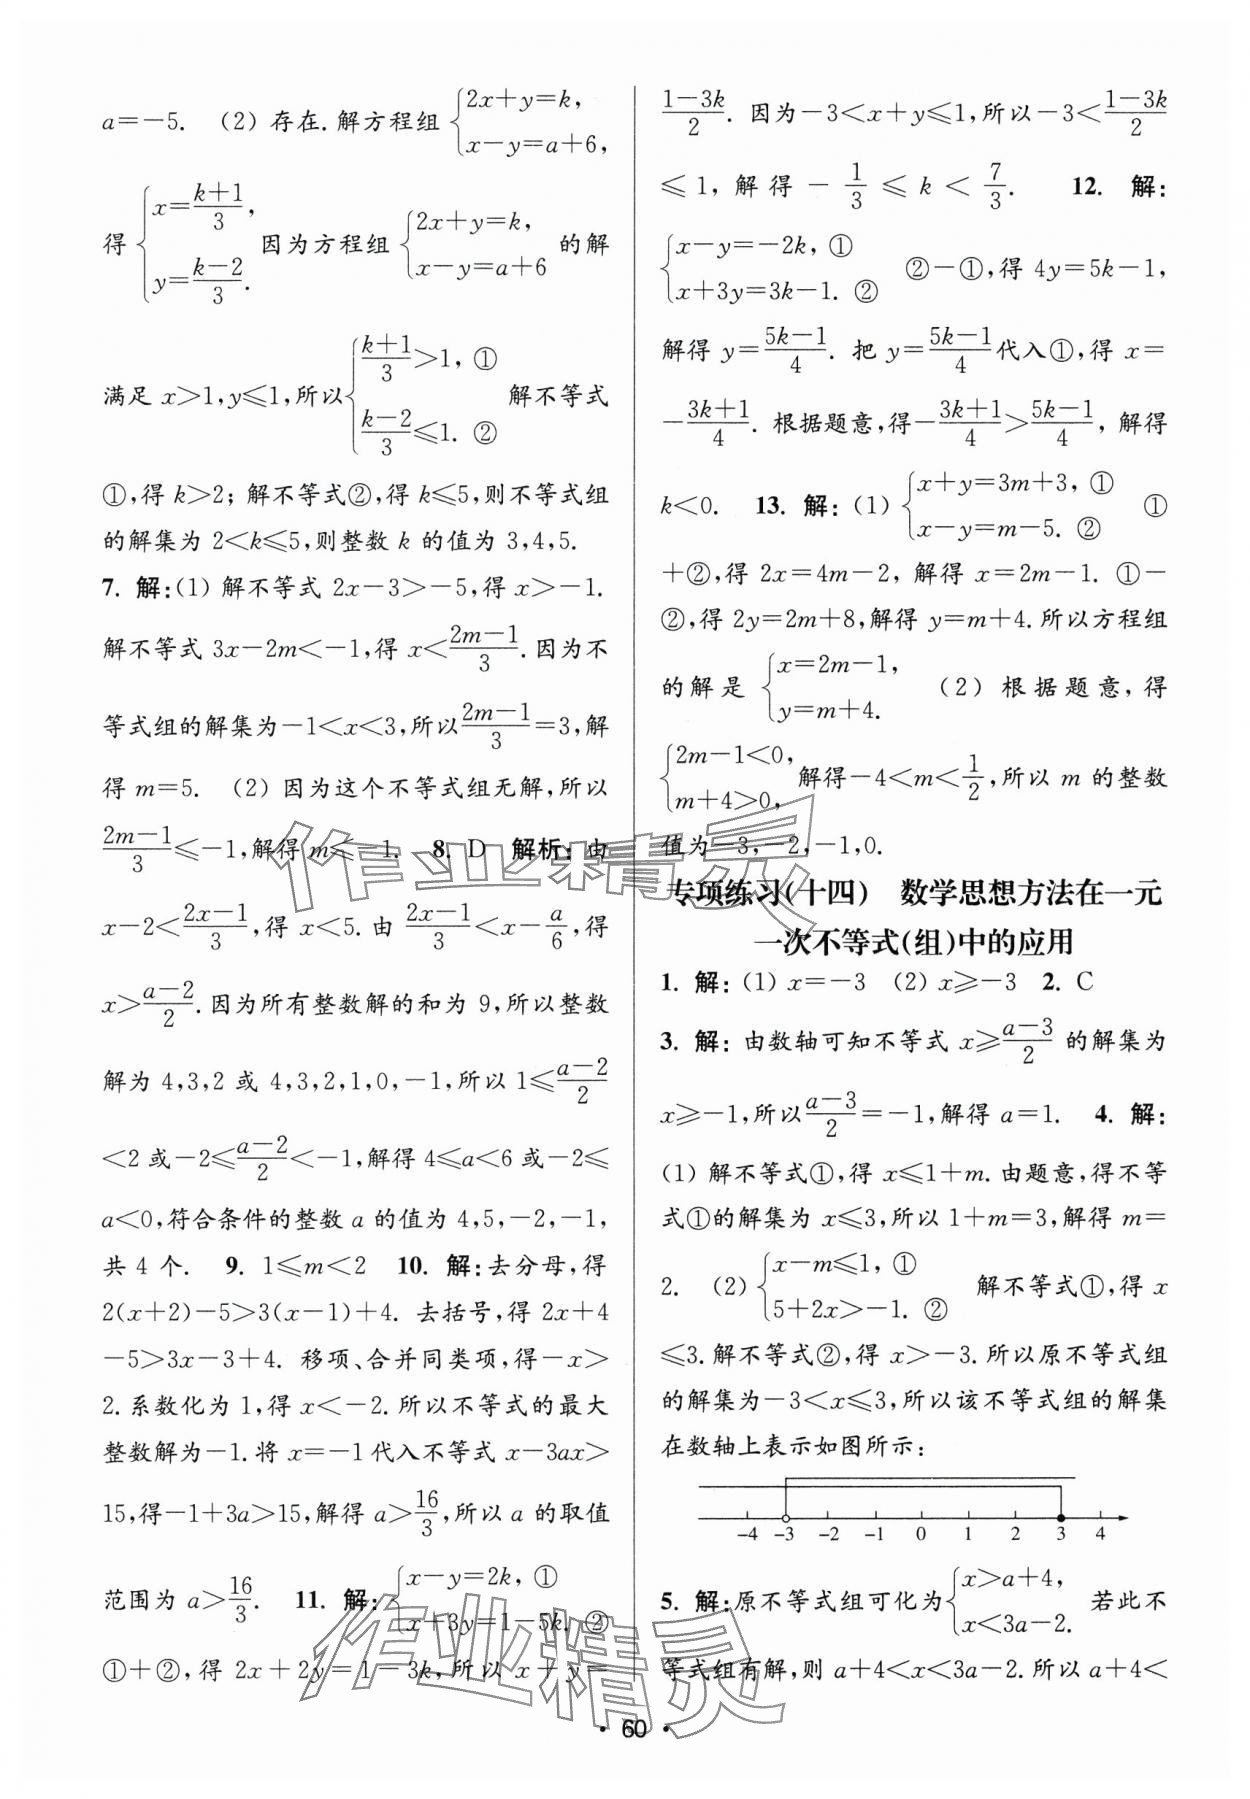 a=-5. (2) 存在.解方程组{2x+y=k, x-y=a+6,
得{x=(k+1)/3, y=(k-2)/3. 因为方程组{2x+y=k, x-y=a+6 的解
满足 x>1,y≤1,所以{(k+1)/3>1, ① (k-2)/3≤1. ② 解不等式
①,得 k>2; 解不等式②,得 k≤5,则不等式组
的解集为 2<k≤5,则整数 k 的值为 3,4,5.
7. 解:(1) 解不等式 2x-3>-5,得 x>-1.
解不等式 3x-2m<-1,得 x<(2m-1)/3.因为不
等式组的解集为-1<x<3,所以(2m-1)/3=3,解
得 m=5. (2) 因为这个不等式组无解,所以
(2m-1)/3≤-1,解得 m≤-1. 8. D 解析:由
x-2<(2x-1)/3,得 x<5.由 (2x-1)/3<x-a/6,得
x>(a-2)/2.因为所有整数解的和为 9,所以整数
解为 4,3,2 或 4,3,2,1,0,-1,所以 1≤(a-2)/2
<2 或-2≤(a-2)/2<-1,解得 4≤a<6 或-2≤
a<0,符合条件的整数 a 的值为 4,5,-2,-1,
共 4 个. 9. 1≤m<2 10. 解:去分母,得
2(x+2)-5>3(x-1)+4. 去括号,得 2x+4
-5>3x-3+4. 移项、合并同类项,得-x>
2.系数化为 1,得 x<-2.所以不等式的最大
整数解为-1.将 x=-1代入不等式 x-3ax>
15,得-1+3a>15,解得 a>16/3,所以 a 的取值
范围为 a>16/3. 11. 解:{x-y=2k, ① x+3y=1-5k. ②
①+②,得 2x+2y=1-3k,所以 x+y=
(1-3k)/2. 因为-3<x+y≤1,所以-3<(1-3k)/2
≤1,解得-1/3≤k<7/3. 12. 解:
{x-y=-2k, ① x+3y=3k-1. ② ②-①,得 4y=5k-1,
解得 y=(5k-1)/4. 把 y=(5k-1)/4代入①,得 x=
-(3k+1)/4. 根据题意,得-(3k+1)/4>(5k-1)/4, 解得
k<0. 13. 解:(1) {x+y=3m+3, ① x-y=m-5. ② ①
+②,得 2x=4m-2, 解得 x=2m-1. ①-
②,得 2y=2m+8,解得 y=m+4.所以方程组
的解是{x=2m-1, y=m+4. (2) 根据题意,得
{2m-1<0, m+4>0, 解得-4<m<1/2,所以 m 的整数
值为-3,-2,-1,0.
专项练习(十四) 数学思想方法在一元
一次不等式(组)中的应用
1. 解:(1) x=-3 (2) x≥-3 2. C
3. 解: 由数轴可知不等式 x≥(a-3)/2 的解集为
x≥-1,所以(a-3)/2=-1,解得 a=1. 4. 解:
(1) 解不等式①,得 x≤1+m.由题意,得不等
式①的解集为 x≤3,所以 1+m=3,解得 m=
2. (2) {x-m≤1, ① 5+2x>-1. ② 解不等式①,得 x
≤3.解不等式②,得 x>-3.所以原不等式组
的解集为-3<x≤3,所以该不等式组的解集
在数轴上表示如图所示:
-4 -3 -2 -1 0 1 2 3 4
5. 解:原不等式组可化为{x>a+4, x<3a-2. 若此不
等式组有解,则 a+4<x<3a-2.所以 a+4<
· 60 ·
作业精灵
作业精灵